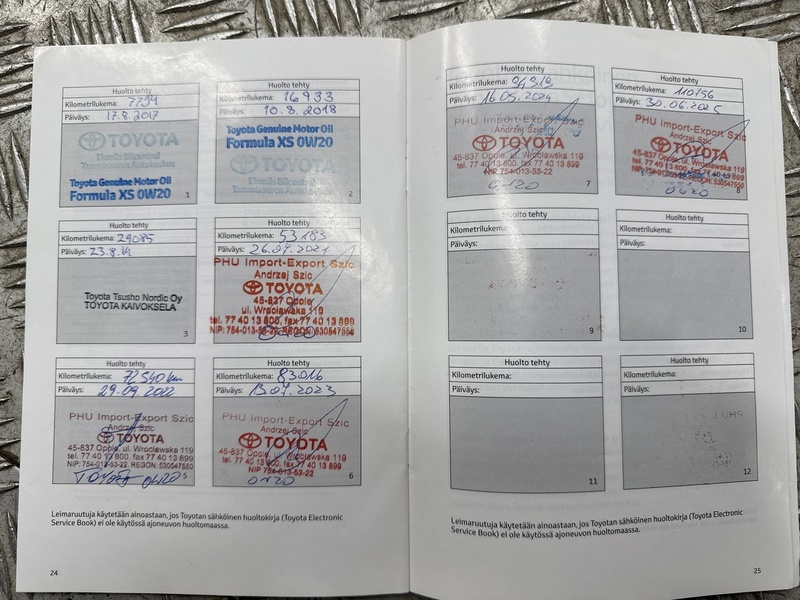 Huolto tehty
Kilometrilukema: 7794
Päiväys: 17.8.2017
TOYOTA
Toyota Genuine Motor Oil
Formula XS 0W20
1
Huolto tehty
Kilometrilukema: 16933
Päiväys: 10.8.2018
Toyota Genuine Motor Oil
Formula XS 0W20
TOYOTA
2
Huolto tehty
Kilometrilukema: 29085
Päiväys: 23.8.19
Toyota Tsusho Nordic Oy
TOYOTA KAIVOKSELA
3
Huolto tehty
Kilometrilukema: 53183
Päiväys: 26.07.2021
PHU Import-Export Szic
Andrzej Szic
TOYOTA
45-837 Opole
ul. Wrocławska 119
tel. 77 40 13 800, fax 77 40 13 899
NIP: 754-013-53-22, REGON: 530547554
Huolto tehty
Kilometrilukema: 72540 km
Päiväys: 29.09 2022
PHU Import-Export Szic
Andrzej Szic
TOYOTA
45-837 Opole, ul. Wrocławska 119
tel. 77 40 13 800, fax 77 40 13 899
NIP: 754-013-53-22, REGON: 530547554
TOYOTA 0W20
5
Huolto tehty
Kilometrilukema: 83016
Päiväys: 13.07.2023
PHU Import-Export Szic
Andrzej Szic
TOYOTA
45-837 Opole, ul. Wrocławska 119
tel. 77 40 13 800, fax 77 40 13 899
NIP 754-013-53-22
0W20
6
Leimaruutuja käytetään ainoastaan, jos Toyotan sähköinen huoltokirja (Toyota Electronic
Service Book) ei ole käytössä ajoneuvon huoltomaassa.
24
Huolto tehty
Kilometrilukema: 94319
Päiväys: 16.05.2024
PHU Import-Export Szic
Andrzej Szic
TOYOTA
45-837 Opole, ul. Wrocławska 119
tel. 77 40 13 800, fax 77 40 13 899
NIP 754-013-53-22
0W20
7
Huolto tehty
Kilometrilukema: 110756
Päiväys: 30.06.2025
PHU Import-Export Szic
Andrzej Szic
TOYOTA
45-837 Opole, ul. Wrocławska 119
tel. 77 40 13 800, fax 77 40 13 899
0W20
8
Huolto tehty
Kilometrilukema:
Päiväys:
9
Huolto tehty
Kilometrilukema:
Päiväys:
10
Huolto tehty
Kilometrilukema:
Päiväys:
11
Huolto tehty
Kilometrilukema:
Päiväys:
12
Leimaruutuja käytetään ainoastaan, jos Toyotan sähköinen huoltokirja (Toyota Electronic
Service Book) ei ole käytössä ajoneuvon huoltomaassa.
25